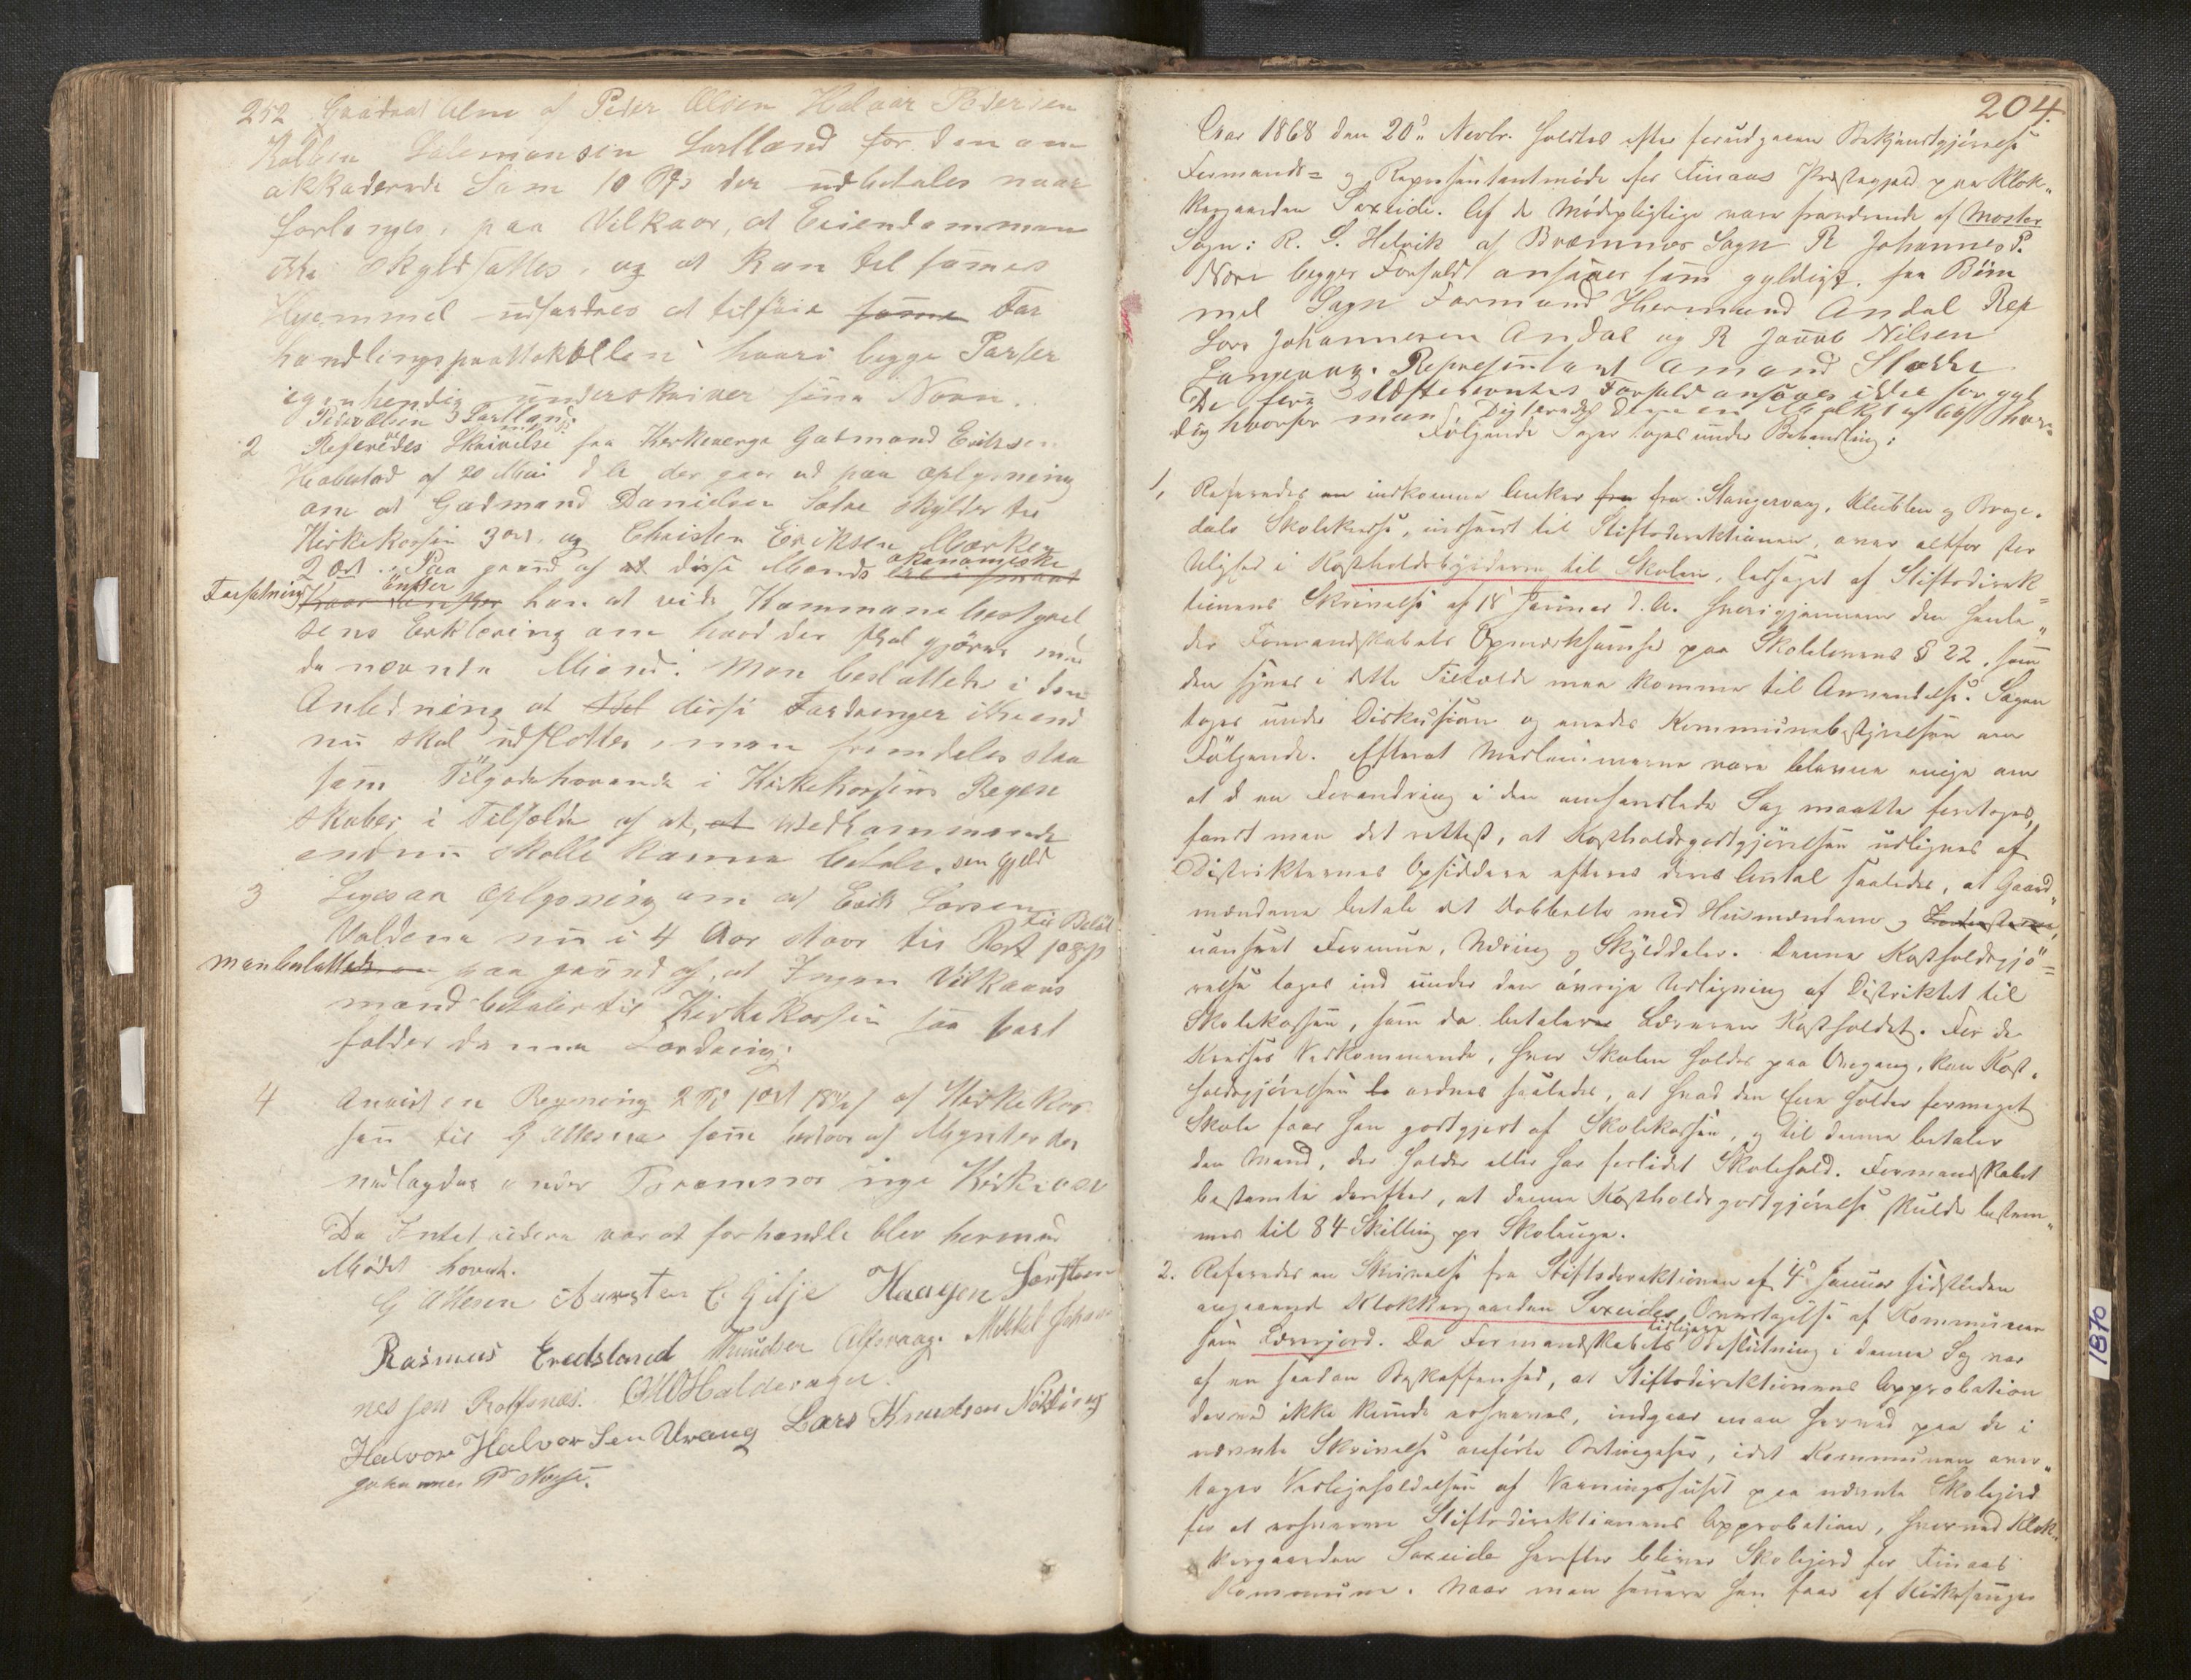 252 af Peder Olsen Halvor Pedersen
Kolben Salemonsen Sortland for den om
akkaderede Sum 10 der udbetales naar
forlanges, paa Vilkaar, at Eiendommen
ikke Skyldsættes, og at Kan til sammes
Hjemmel udfærdes at tilføie samme For
handlingsprottokollen hvori begge Parter
egenhendig underskriver sine Navn.
Peder Olsen Sortland
2 Refereredes Skrivelse fra Kirkeverge Gudmand Eriksen
af 20 Mai d A der gaar ud paa oplysning
om at Gudmand Danielsen skylder til
Kirkekassen 3 ort. og Christen Eriksen
2 Ort. Paa grund af at disse Mænds økonomiske
Forfatning ønsker han at vide Kommune bestyrel
sens Erklæring om hvad der skal gjøres med
de nævnte Mænd. Man besluttede i den
Anledning at disse Fordringer ikke end
nu skal udslettes, men fremdeles staa
som Tilgodehavende i Kirkekassens Regen
skaber, i Tilfelde af at, at Vedkommende
endnu skulle kunne betale sin gjeld
3 Ligesaa oplysning om at Erik Larsen
nu i 4 Aar staar til Rest
man besluttede paa grund af, at Ingen Vilkaars
mand betaler til Kirke Kassen saa bort
falder denne Fordring.
4 Anvist en Regning 2 1 ort 18 af Kirkekas
sen til G Ottesen som bestaar af Mynter der
nedlagdes under Bremnes nye Kirke
Da Intet videre var at forhandle blev hermed
Mødet hævet.
G Ottesen Aursten C. Gilje Haagen
Rasmus Eredsland Knudsen Alfsvaag. Mikkel Johan
nessen Rolfsnæs. O M Halderager.
Halvor Halvorsen Vraag Lars Knudsen
Johannes P Nøse.
204.
Aar 1868 den 20de Novbr. holdtes efter forudgaaen Bekjendtgjørelse
Formands- og Repræsentantmøde for Finaas Præstegjeld paa Klok-
kergaarden Sexeide. Af de Mødepligtige vare fraværende af Moster
Sogn: R. S. Helvik af Bræmnes Sogn R Johannes P.
Nøse begges Forfald ansaaes som gyldigt. fra Bøm
mel Sogn Formand Hermund Andal Rep
Lars Johannesen Andal og R Jacob Nilsen
Repræsentant Amand
De fem sidstnevntes Forfald ansaaes ikke for gyl
dig hvorfor man
Følgende Sager toges under Behandling:
1, Refererdes en indkommen Anker fra fra Stangervaag, Kleiblen og Vrage-
dals Skolekreds, indsendt til Stiftsdirektionen, over altfor stor
Ulighed i Kostholdsbyrderne til Skolen, ledsaget af Stiftsdirek-
tionens Skrivelse af 18 Januar d. A. hvorigjennem den henle-
der Formandskabets Opmærksomhed paa Skolelovens § 22, som
den synes i dette Tilfælde maa komme til Anvendelse. Sagen
toges under Diskusion og enedes Kommunebestyrelsen om
Følgende. Efterat Medlemmerne vare blevne enige om
at d en Forandring i den omhandlede Sag maatte foretages,
fandt man det rettest, at Kostholdsgodtgjørelsen udlignes af
Distrikternes Opsiddere efter deres Antal saaledes, at Gaard-
mændene betale det Dobbelte mod Husmændene og
uanseet Formue, Næring og Skylddaler. Denne Kostholdsgjø-
relse tages ind under den øvrige Udligning af Distriktet til
Skolekassen, som da betaler Læreren Kostholdet. For de
Kredses Vedkommende, hvor Skolen holdes paa Omgang, kan Kost-
holdsgjørelsen ordnes saaledes, at hvad den Ene holder formeget
Skole faar han godtgjort af Skolekassen, og til denne betaler
den Mand, der holder eller har forlidet Skolehold. Formandskabet
bestemte derefter, at denne Kostholdsgodtgjørelse skulde bestem-
mes til 84 Skilling pr Skoleuge.
2. Refererdes en Skrivelse fra Stiftsdirektionen af 4de Januar sidstleden
angaaende Klokkergaarden Sexeides Overtagelse af Kommunen
som Lærerjord. Da Formandskabets tidligere Beslutning i denne Sag var
af en saadan Beskaffenhed, at Stiftsdirektionens Approbation
derved ikke kunde erhverves, indgaar man hermed paa de i
nævnte Skrivelse anførte Betingelser, idet Kommunen over-
tager Vedligeholdelsen af Vaaningshuset paa nævnte Skolejord
for at erhverve Stiftsdirektionens Approbation, hvorved Klok-
kergaarden Sexeide herefter bliver Skolejord for Finaas
Kommune. Naar man senere hen faar af Kirkesanger
1870